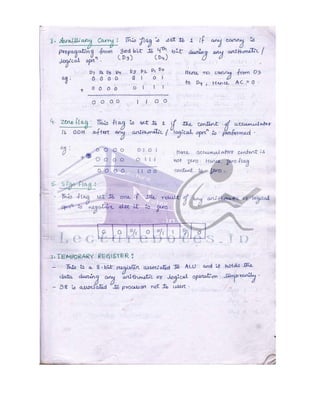 3. Auxilliary Carry : This flag is set to 1 if any carry is
propagating from 3rd bit to 4th bit during any arithmetic /
logical oprn. (D3) (D4)
D7 D6 D5 D4 D3 D2 D1 D0
eg : 0 0 0 0 0 1 0 1 Here no carry from D3
+ 0 0 0 0 0 1 1 1 to D4 , Hence AC = 0 .
0 0 0 0 1 1 0 0
4. Zero flag : This flag is set to 1 if the content of accumulator
is 00H after any arithmetic / logical oprn is performed .
eg : 0 0 0 0 0 1 0 1 Here accumulator content is
+ 0 0 0 0 0 1 1 1 not zero. Hence zero flag
0 0 0 0 1 1 0 0 content is zero .
5. Sign flag :
This flag set to one if the result of any arithmetic or logical
oprn is negative else it is zero .
0 0 0/1 0 0/1 1 0
Lecturenotes.in
3. TEMPORARY REGISTER :
- This is a 8-bit register associated to ALU and it holds the
data during any arithmetic or logical operation temporarily .
- It is associated to processor not to user .